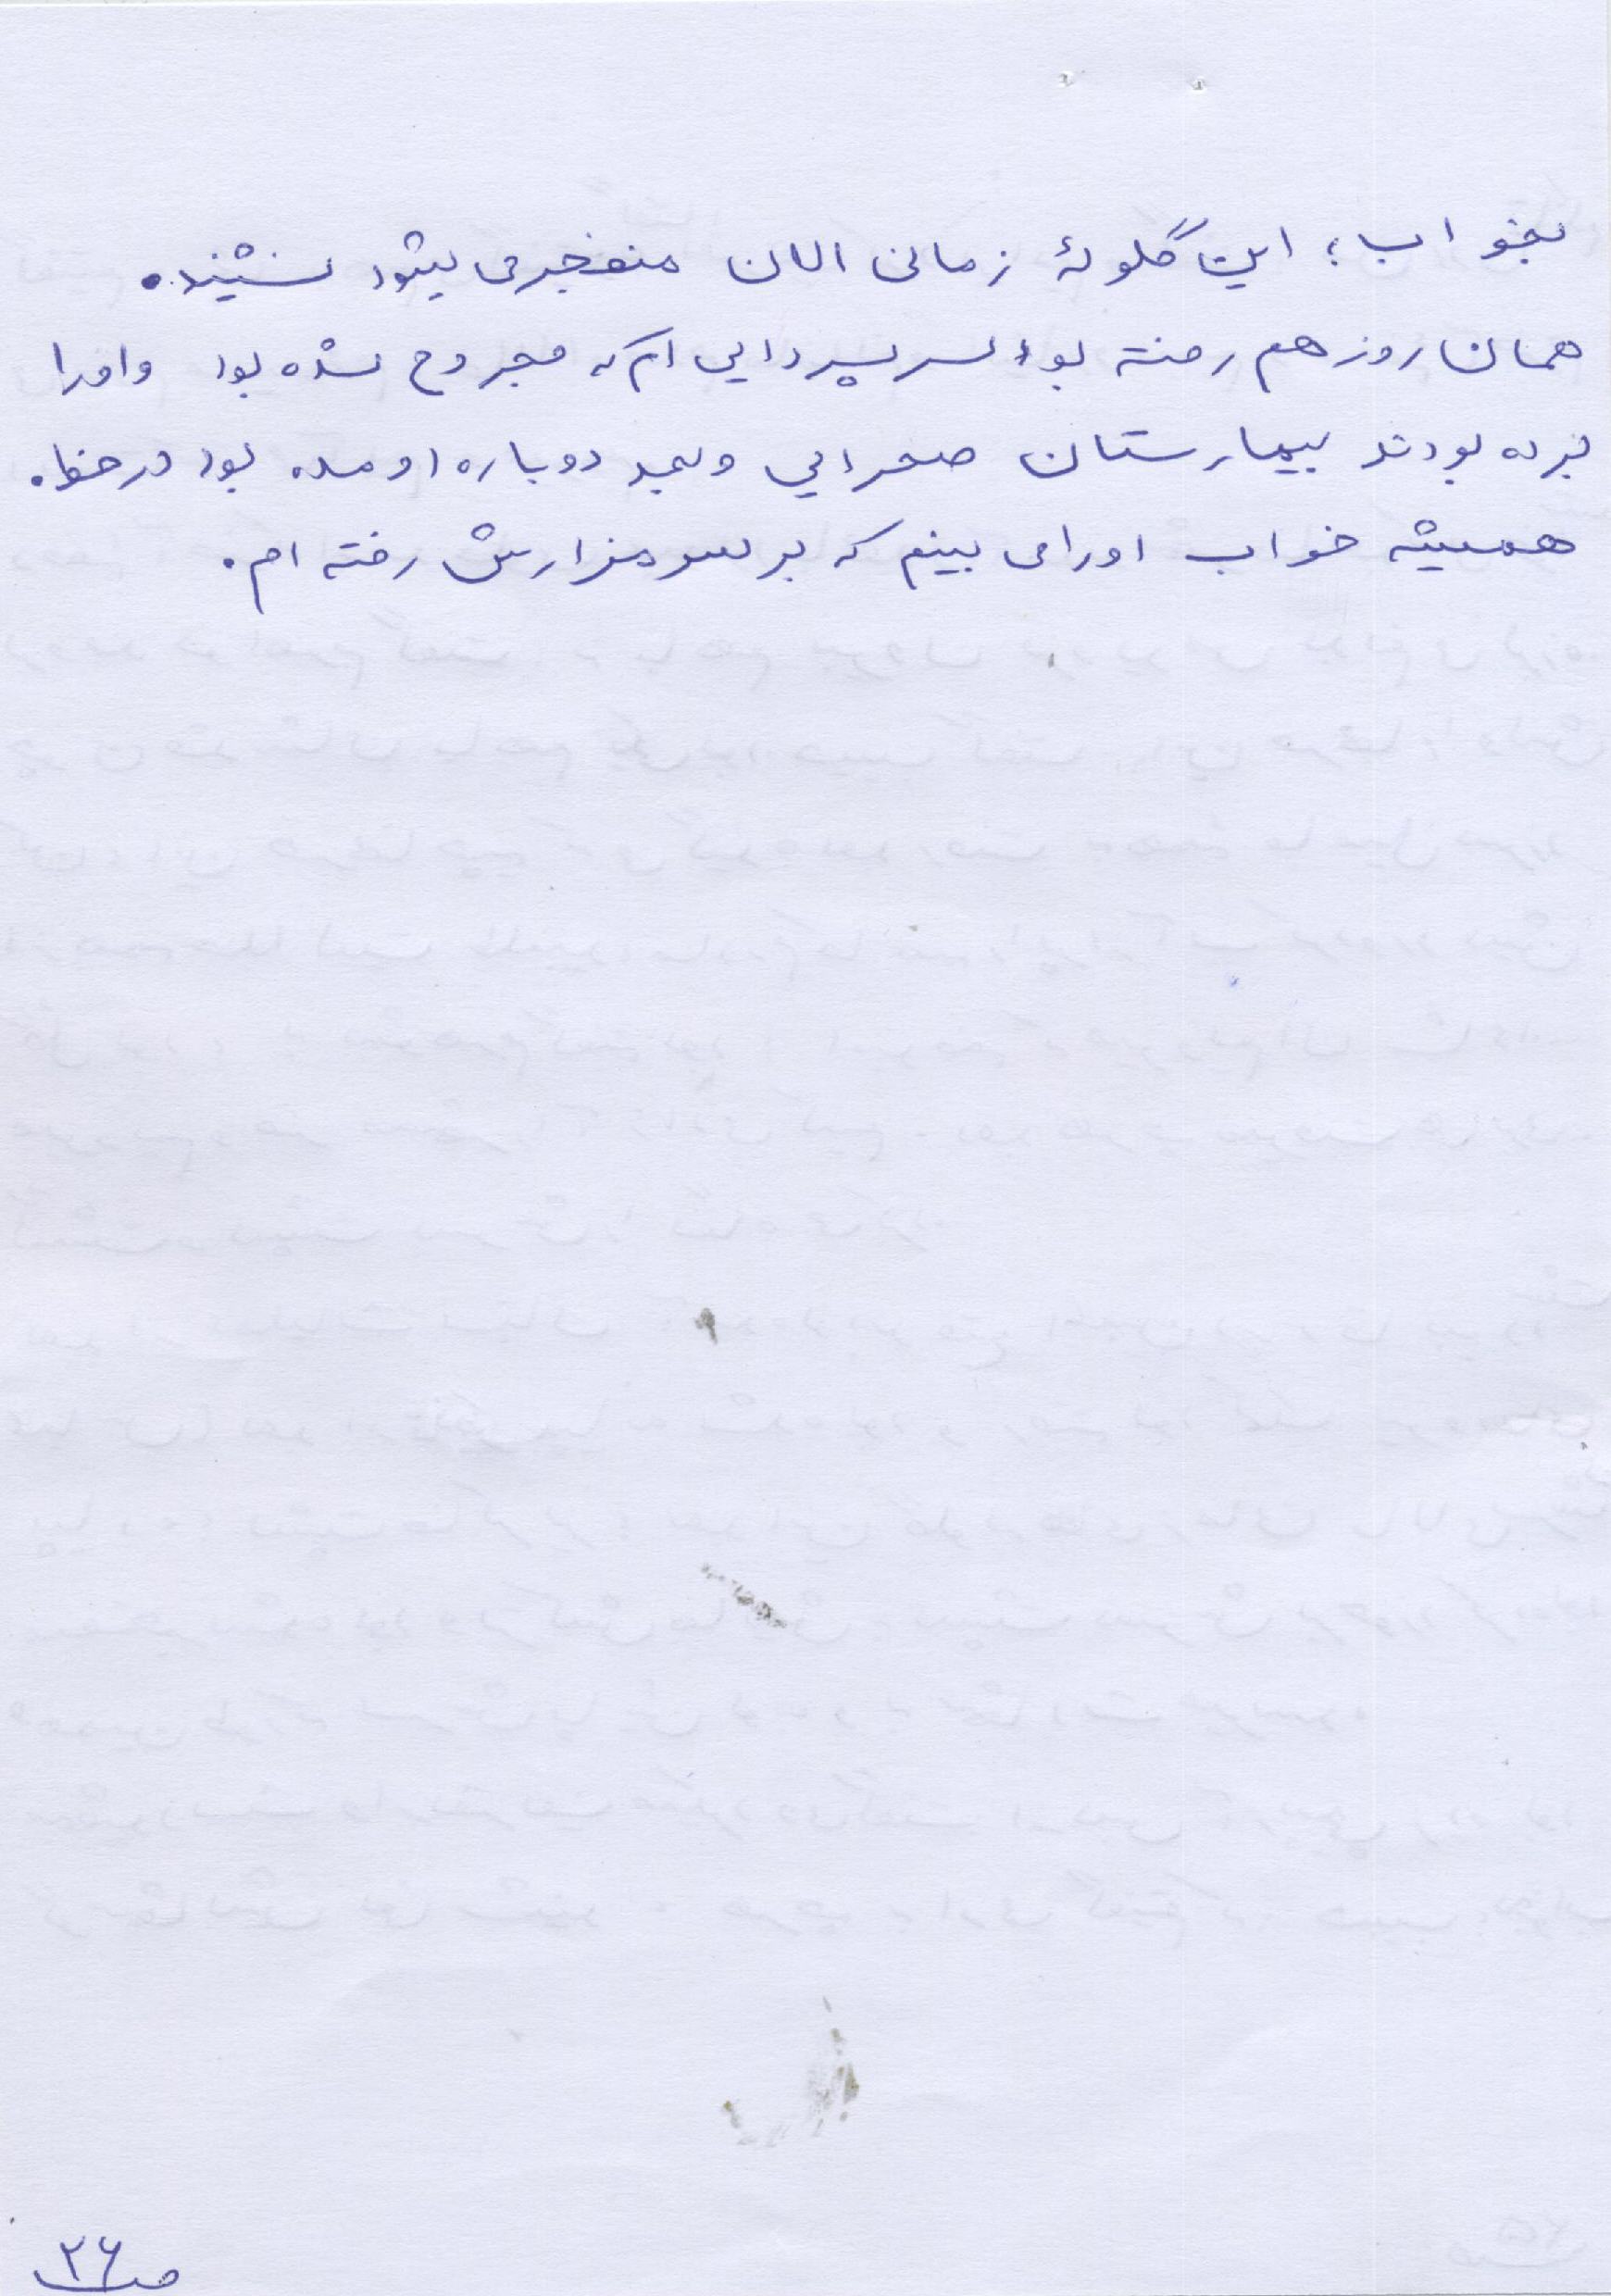 بخواب؛ این گلولهٔ زمانی الان منفجر می شود نشنیده.
همان روز هم رفته بود سر پسر دایی ام که مجروح شده بود و او را
برده بودند بیمارستان صحرایی و بعد دوباره اومده بود در خط.
همیشه خواب او را می بینم که بر سر مزارش رفته ام.
ص ۲۶